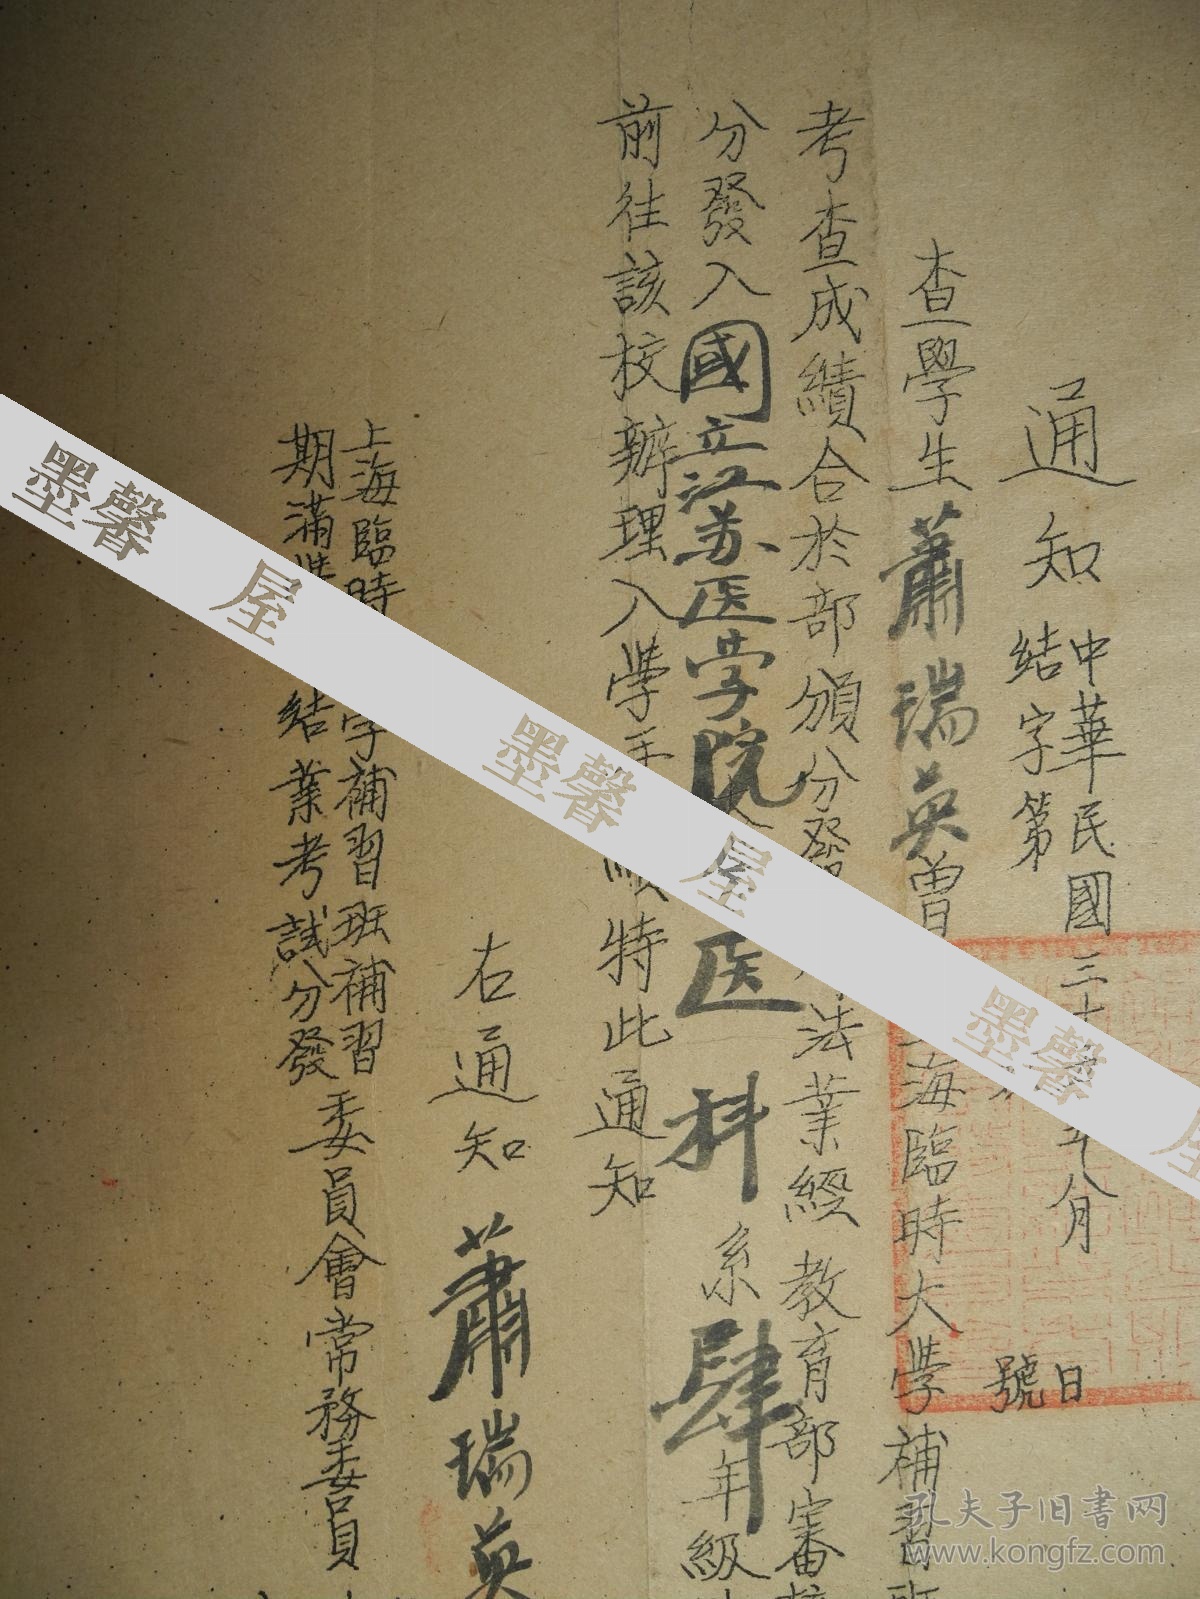 通知
中華民國三十 年八月 日
結字第 號
查學生蕭瑞英曾 海臨時大學補習班
考查成績合於部頒分發 法業經教育部審核
分發入國立江苏医学院医科系肆年級
前往該校辦理入學手續特此通知
右通知 蕭瑞英
上海臨時 學補習班補習
期滿學 結業考試分發委員會常務委員
墨馨屋
墨馨屋
墨馨屋
孔夫子旧书网
www.kongfz.com